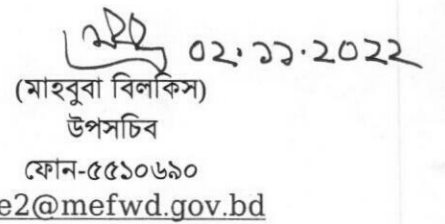 ০২.১১.২০২২
(মাহবুবা বিলকিস)
উপসচিব
ফোন-৫৫১০৬৯০
e2@mefwd.gov.bd